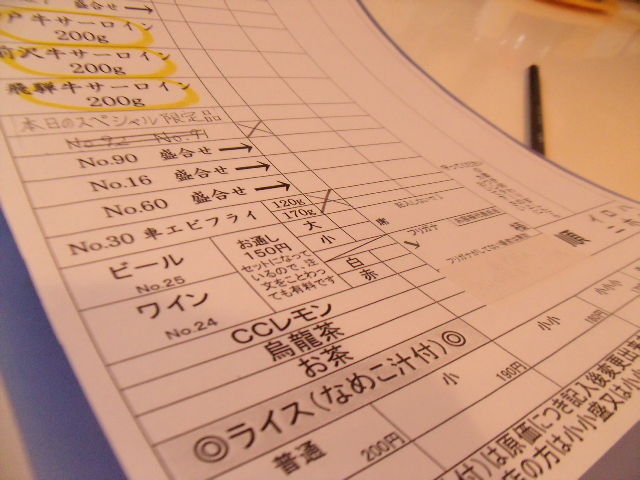 盛合せ→
戸牛サーロイン
200g
前沢牛サーロイン
200g
飛騨牛サーロイン
200g
本日のスペシャル限定品
No.92 No.91
No.90 盛合せ→
No.16 盛合せ→
No.60 盛合せ→
No.30 車エビフライ 120g
170g
ビール
No.25
お通し
150円
セットになって
いるので、注
文をことわっ
ても有料です
大
小
ワイン
No.24
白
赤
CCレモン
烏龍茶
お茶
◎ライス(なめこ汁付)◎
普通 200円
小 190円
小小
フリガナ
様
順
付)は原価につき記入後変更出来
の方は小小盛又は小